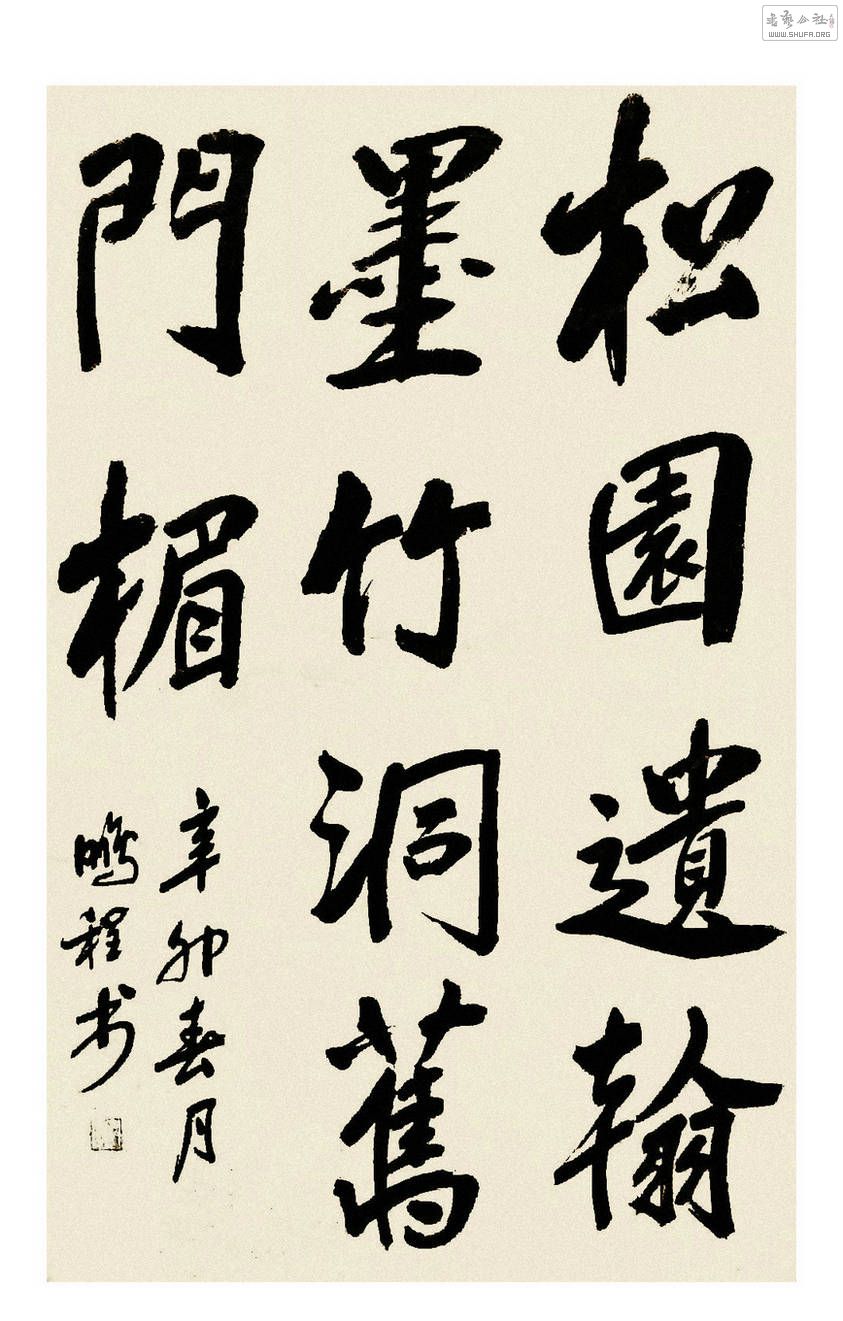 松園遺翰
墨竹洞舊
門楣
辛卯春月
鵬程书
书艺公社
WWW.SHUFA.ORG